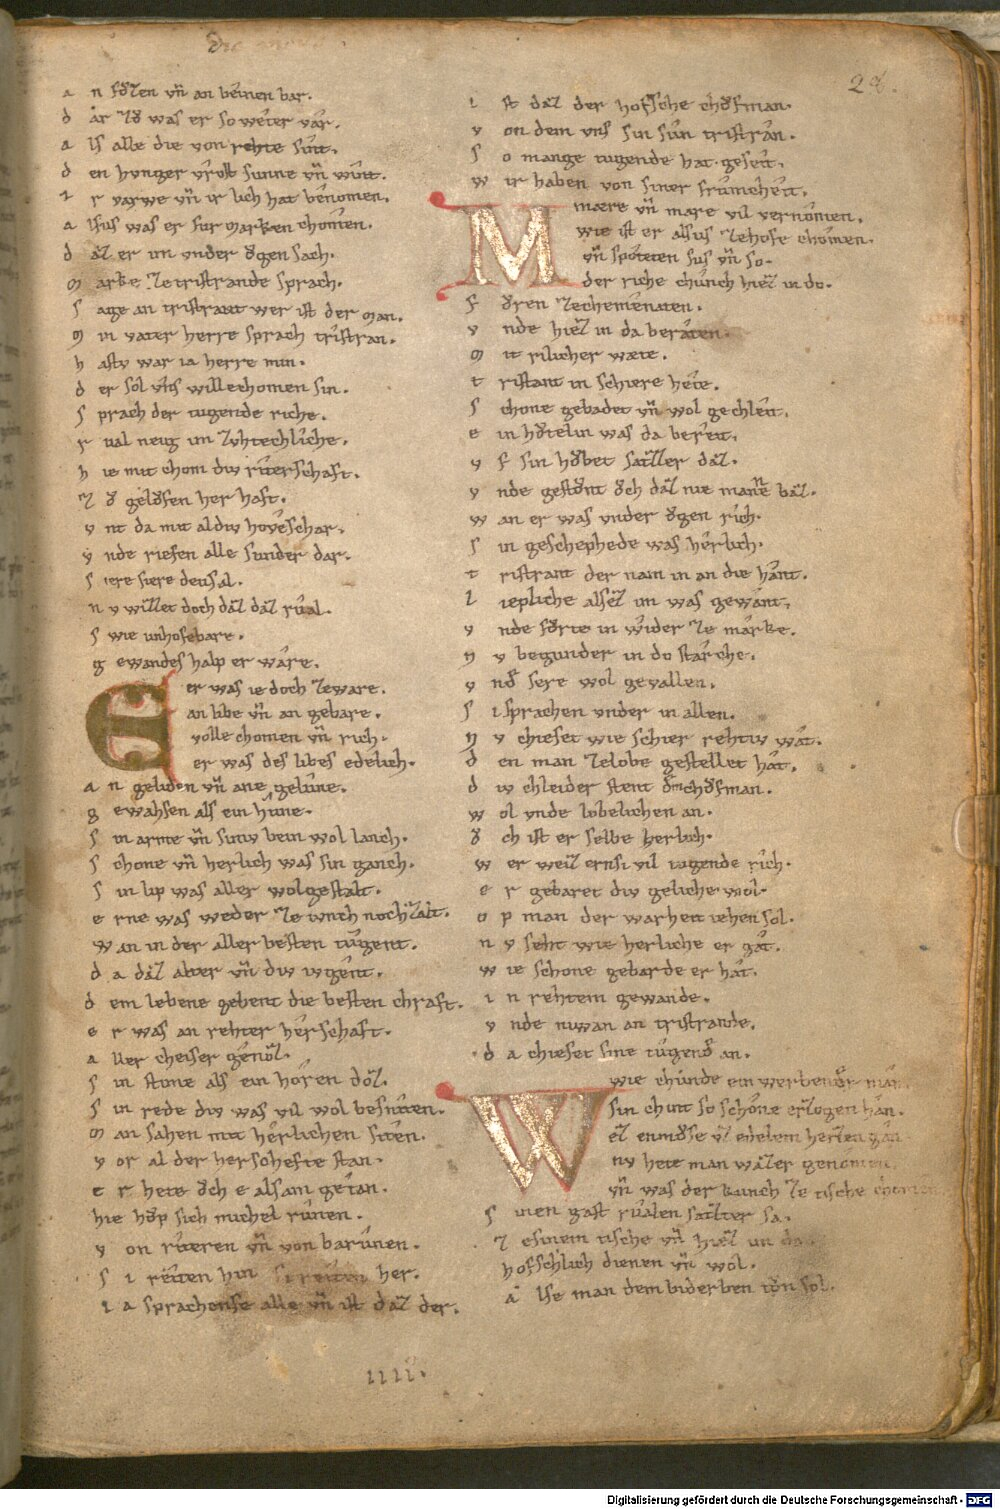 28.
a n fůzen vn̄ an beinen bar.
d ar zů was er so weter var.
a ls alle die von rehte sint.
d en hvnger vrost sunne vn̄ wint.
i r varwe vn̄ ir lich hat benomen.
a lsus was er fur marken chomen.
d az er im vnder ǒgen sach.
m arke ze tristrande sprach.
s age an tristrant wer ist der man.
m in vater herre sprach tristran.
h astv war ia herre min.
d er sol vns willechomen sin.
s prach der tugende riche.
r val neug im zvhtechliche.
h ie mit chom div riterschaft.
z ů gelǒfen her haft.
v nt da mit al div hoveschar.
v nde riefen alle sunder dar.
s iere siere deusal.
n v willet doch daz daz rual.
s wie unhofebare.
g ewandes halp er ware.
E er was ie doch zeware.
an libe vn̄ an gebare.
volle chomen vn̄ rich.
er was des libes edelich.
a n geliden vn̄ ane gelune.
g ewahsen als ein hiune.
s in arme vn̄ siniv bein wol lanch.
s chone vn̄ herlich was sin ganch.
s in lip was aller wolgestalt.
e rne was weder ze iunch noch zalt.
w an in der aller besten tugent.
d a daz alter vn̄ div iugent.
d em lebene gebent die besten chraft.
e r was an rehter herschaft.
a ller cheiser genoz.
s in stime als ein horen doz.
s in rede div was vil wol besniten.
m an sahen mit herlichen siten.
v or al der herschefte stan.
e r hete ǒch e alsam getan.
hie hǒp sich michel runen.
v on riteren vn̄ von barunen.
s i reiten hin si reiten her.
i a sprachense alle vn̄ ist daz der.
i st daz der hofsche chǒfman.
v on dem vns sin sun tristran.
s o mange tugende hat geseit.
w ir haben von siner frumcheit.
M mære vn̄ mare vil vernomen.
wie ist er alsus zehofe chomen.
vn̄ spotten sus vn̄ so.
der riche chunch hiez in do.
f ůren zechemenaten.
v nde hiez in da beraten.
m it rilicher wæte.
t ristant in schiere hete.
s chone gebadet vn̄ wol gechleit.
e in hůtelin was da bereit.
v f sin hǒbet satzter daz.
v nde gestůnt ǒch daz nie manne baz.
w an er was vnder ǒgen rich.
s in geschephede was herlich.
t ristrant der nam in an die hant.
l iepliche alsez im was gewant.
v nde fůrte in wider ze marke.
n v begunder in do starche.
v nd sere wol gevallen.
s i sprachen vnder in allen.
n v chieset wie schier rehtiv wat.
d en man zelobe gestellet hat.
d iv chleider stent dem chǒfman.
w ol vnde lobelichen an.
ǒ ch ist er selbe herlich.
w er weiz ern si vil tugende rich.
e r gebaret div geliche wol.
o p man der warheit iehen sol.
n v seht wie herliche er gat.
w ie schone gebarde er hat.
i n rehtem gewande.
v nde niuwan an tristrande.
d a chieset sine tugend an.
W wie chunde ein werbender man
sin chint so schone erzogen han.
ez enmǒse vz edelem herzen gan
nv hete man wazer genomen
vn̄ was der kunch ze tische chomen
s inen gast rualen satzter sa.
z e sinem tische vn̄ hiez im da
hofschlich dienen vn̄ wol.
a lse man dem biderben tůn sol.
IIII.
Digitalisierung gefördert durch die Deutsche Forschungsgemeinschaft - DFG